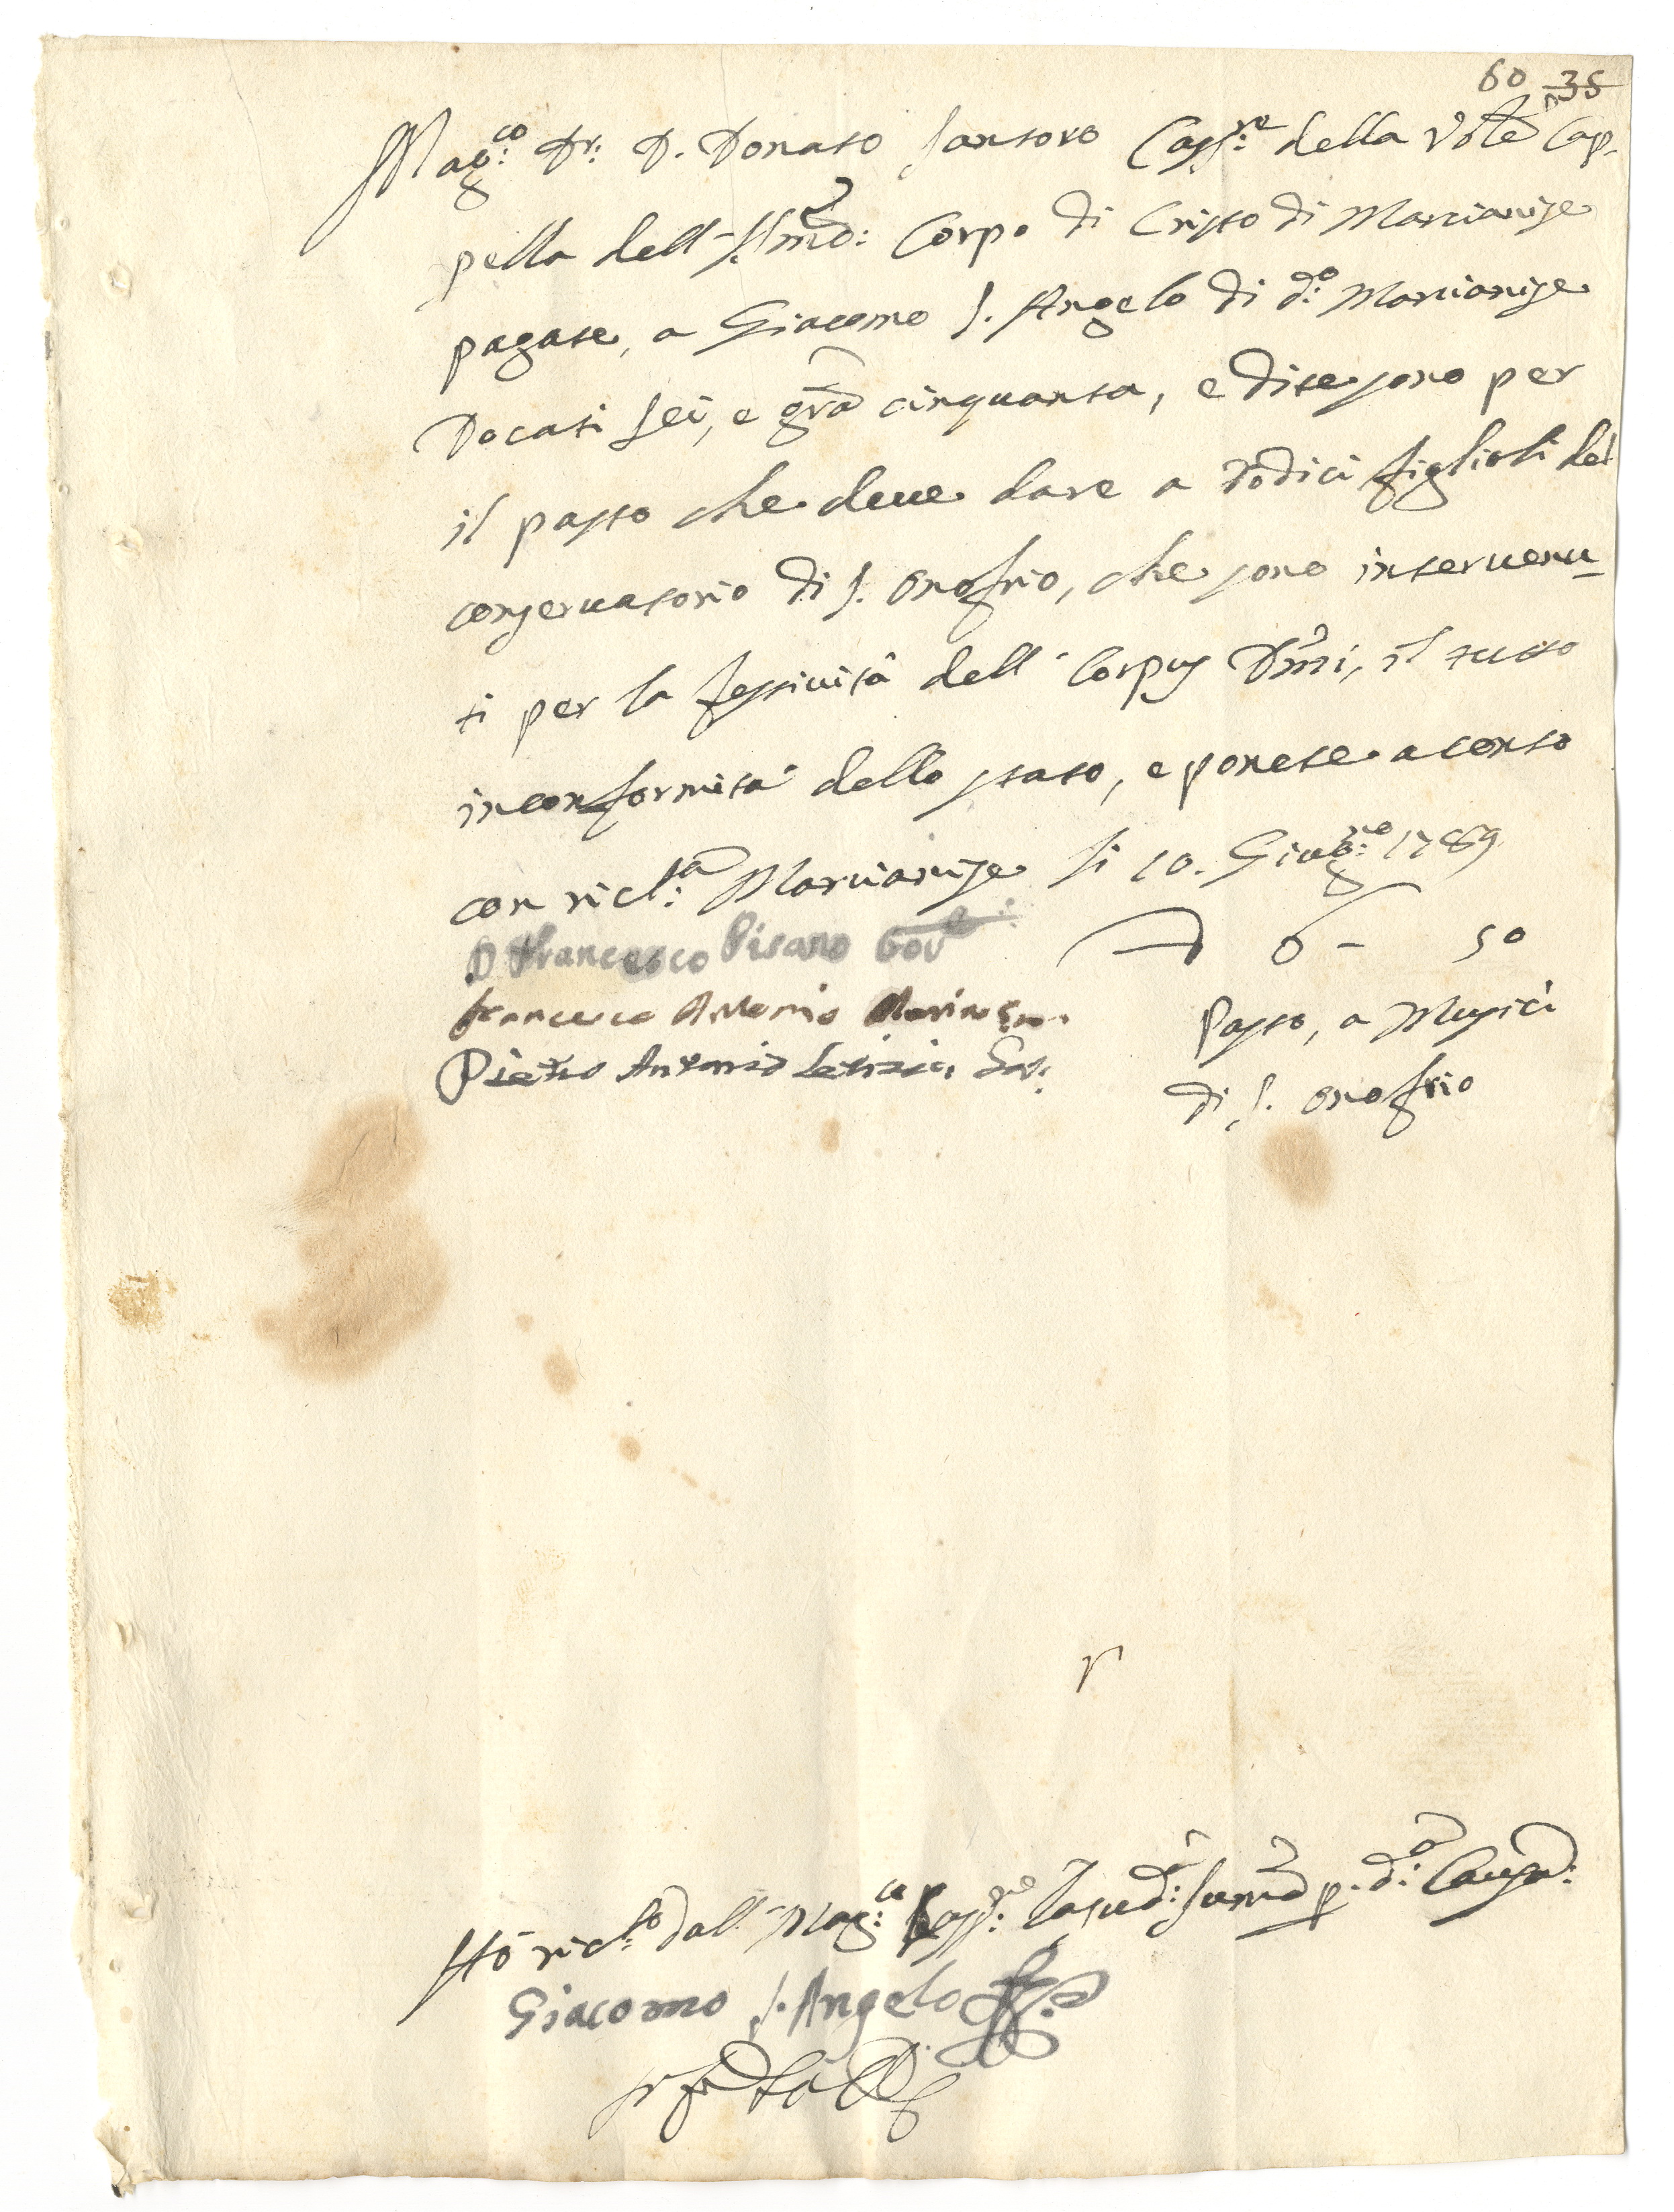 60 35
Mag:co Dr: D. Donato Santoro Cass:re della Vôle Cap-
pella dell' SSmo: Corpo di Cristo di Marcianise
pagate, a Giacomo S. Angelo di d:o Marcianise
Docati sei, e grã cinquanta, e dite sono per
il pasto che deve dare a dodici figlioli del
conservatorio di S. Onofrio, che sono intervenu-
ti per la festività dell' Corpus Dñi, il tutto
inconformità dello stato, e ponete a conto
con ric:ta Marcianise li 10. Giug:no 1789
D 6 - 50
D Francesco Pisano Gov:e
Francesco Antonio Marino Gov.
Pietro Antonio Letizia Gov:
Pasto, a Musici
di S. Onofrio
Hò ric:to dall' Mag:co Cass:re la sud:a summa p. d:a Causa:
Giacomo S. Angelo